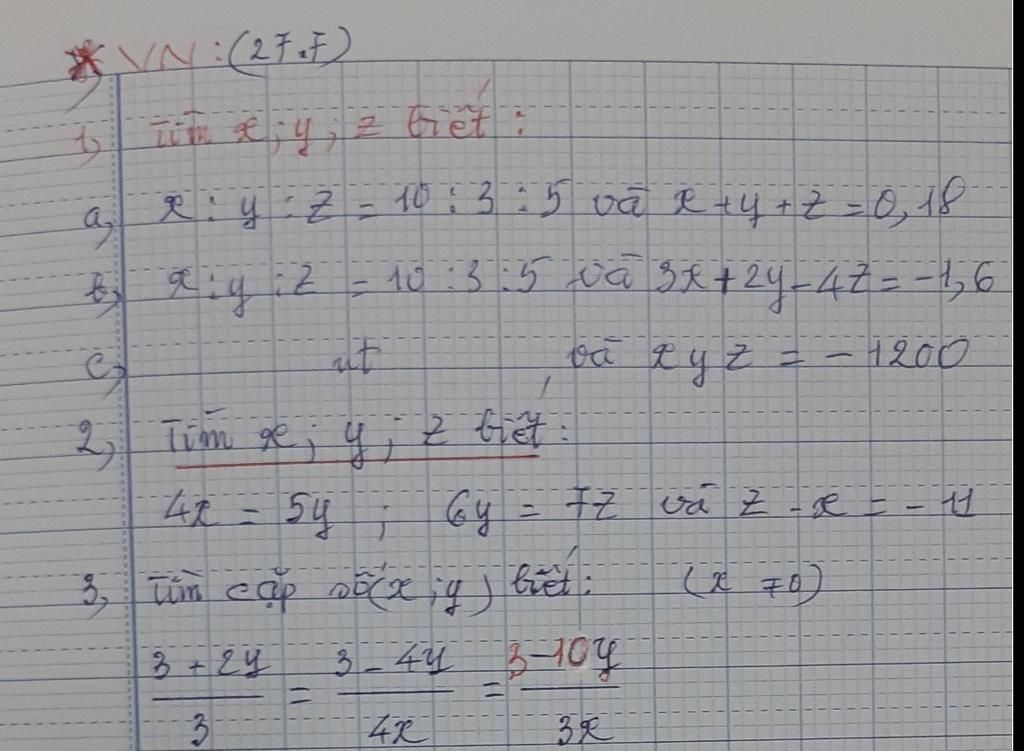 * VN : (27.7)
1, Tìm x ; y ; z biết :
a, x : y : z = 10 : 3 : 5 và x + y + z = 0,18
b, x : y : z = 10 : 3 : 5 và 3x + 2y - 4z = -1,6
c, nt và x y z = - 1200
2, Tìm x ; y ; z biết :
4x = 5y ; 6y = 7z và z - x = - 11
3, Tìm cặp số (x ; y) biết : (x ≠ 0)
3 + 2y / 3 = 3 - 4y / 4x = 3 - 10y / 3x